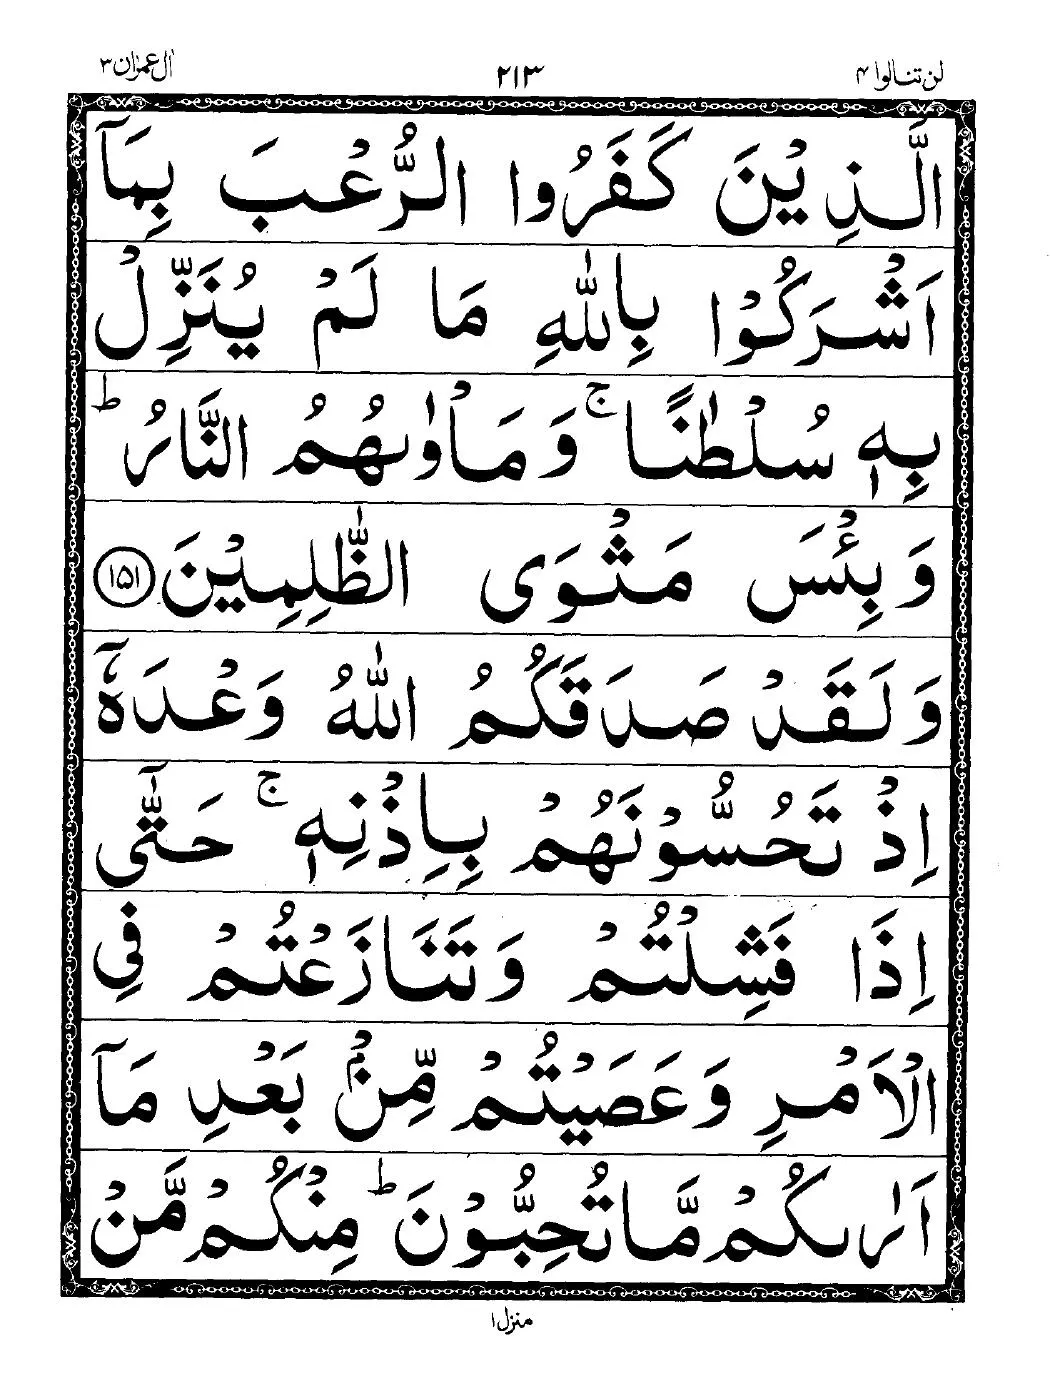 اٰل عمرٰن ٣
٢١٣
لن تنالوا ۴
الَّذِيْنَ كَفَرُوا الرُّعْبَ بِمَآ
اَشْرَكُوْا بِاللّٰهِ مَا لَمْ يُنَزِّلْ
بِهٖ سُلْطٰنًا ۚ وَمَاْوٰىهُمُ النَّارُ ؕ
وَبِئْسَ مَثْوَى الظّٰلِمِيْنَ ﴿١٥١﴾
وَلَقَدْ صَدَقَكُمُ اللّٰهُ وَعْدَهٗۤ
اِذْ تَحُسُّوْنَهُمْ بِاِذْنِهٖ ۚ حَتّٰۤى
اِذَا فَشِلْتُمْ وَتَنَازَعْتُمْ فِى
الْاَمْرِ وَعَصَيْتُمْ مِّنْۢ بَعْدِ مَآ
اَرٰىكُمْ مَّا تُحِبُّوْنَ ؕ مِنْكُمْ مَّنْ
منزل ١